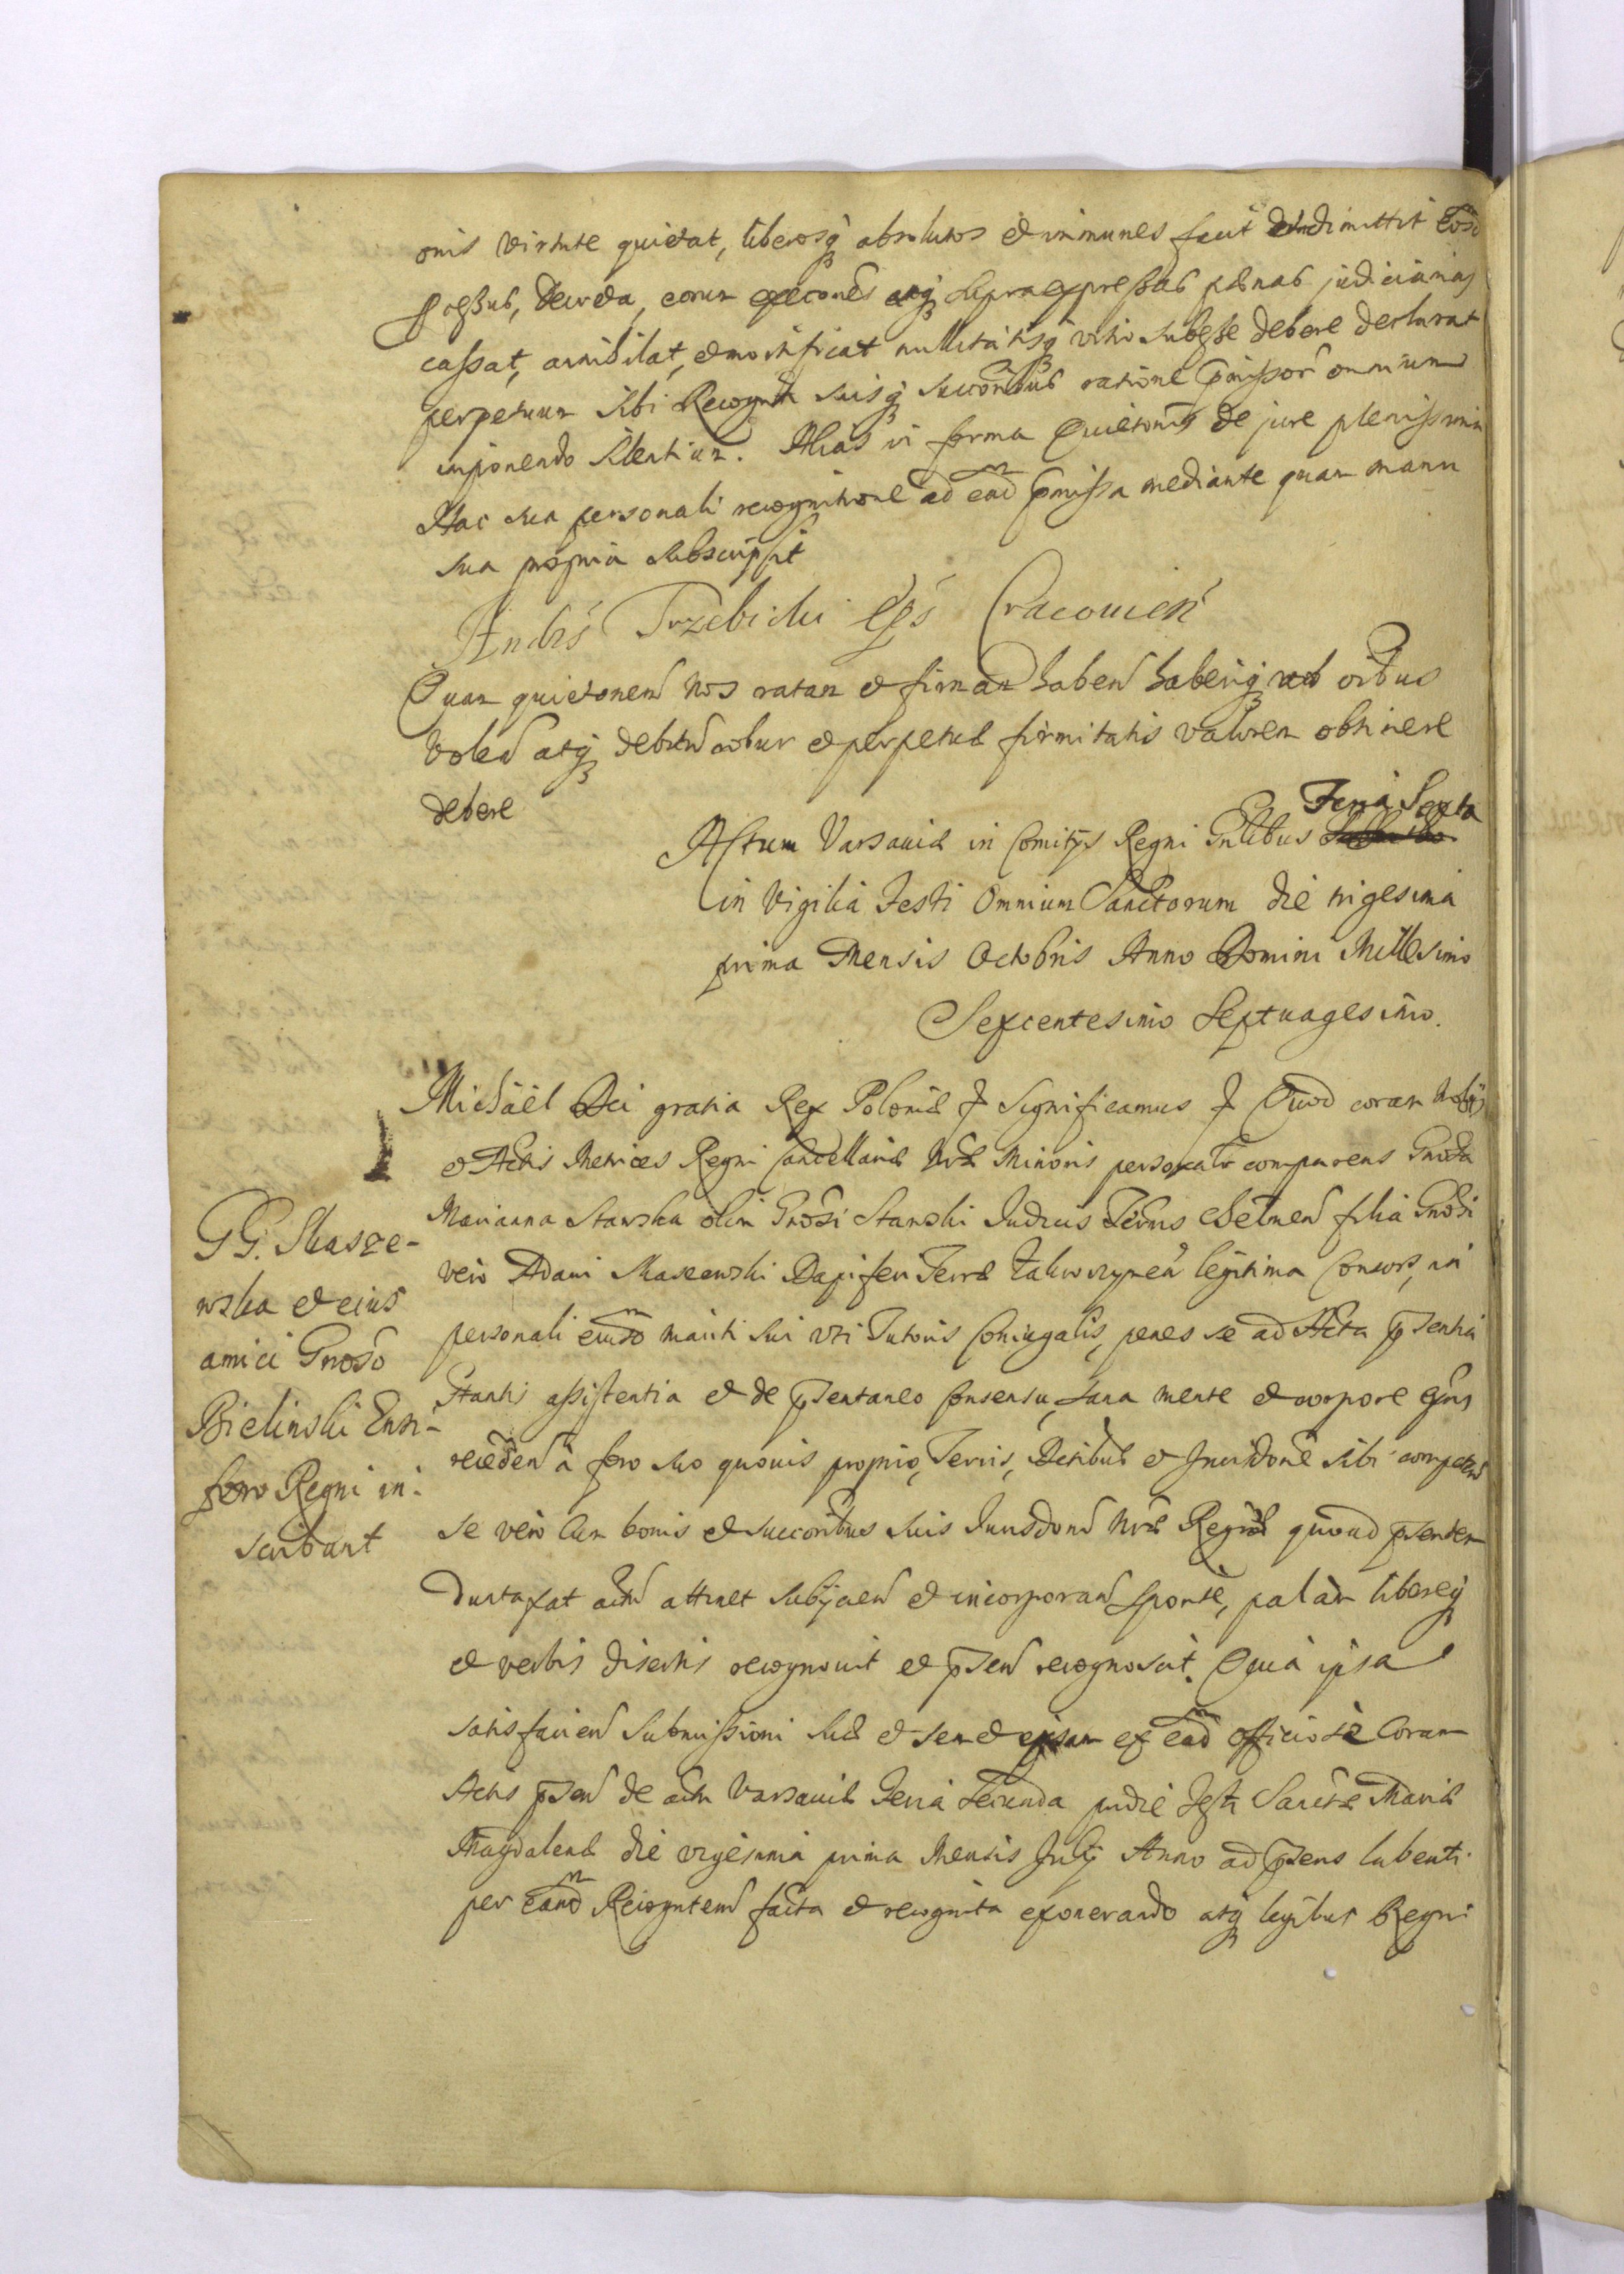 onis virtute quietat, liberosq absolutos et immunes facit dimittit eosd
pcessus, decreta, eorum execones atq supraexpressas paenas judiciarias
cassat, annihilat, et mortificat nullitatisq vitio subesse debere declarat
perpetuum sibi Recognti suisq succoribus ratione pmissor omnium
imponendo silentium. Alias in forma Quietonis de jure plenissima
Hac sua personali recognitione ad ead pmissa mediante quam manu
sua propria subscripsit
Andrs Trzebicki Eps Cracovien
Quam quietonem Nos ratam et firmam haben haberiq ab oibus
volen atq debitu robur et perpetuae firmitatis valorem obtinere
debere
Feria Sexta
Actum Varsaviae in Comitys Regni Gnlibus
in Vigilia Festi Omnium Sanctorum die trigesima
prima Mensis Octobris Anno Domini Millesimo
Sexcentesimo Septuagesimo.
Michaël Dei gratia Rex Poloniae Significamus Quod coram Nobis
et Actis Metrices Regni Cancellariae Nrae Minoris personalr comparens Gnosa
Marianna Starska olim Gnosi Starski Judicis Terris Chelmen filia Gnosi
vero Adami Skaszewski Dapiferi Terrae Zakroczymen legitima Consors, in
personali eiusd mariti sui uti Tutoris Coniugalis, penes se ad Acta psentia
stantis assistentia et de psentaneo consensu, sana mente et corpore exns
receden a foro suo quovis proprio, Terris, Dctibus et Jurisdone sibi competen
se vero cum bonis et succoribus suis Jurisdoni Nrae Regiae quoad psentem
duntaxat actu attinet subijcien et incorporan sponte, palam libereq
et verbis disertis recognovit et psen recognoscit. Quia ipsa
satisfacien submissioni suae et ex ead officiose coram
Actis psen de actu Varsaviae Feria Secunda pridie Festi Sanctae Mariae
Magdalenae die vigesima prima Mensis July Anno ad psens labenti
per eand Recogntem facta et recognita exonerando atq legibus Regni
GG. Skasze-
wska et eius
amici Gnoso
Bielinski Ensi-
fero Regni in-
scribant